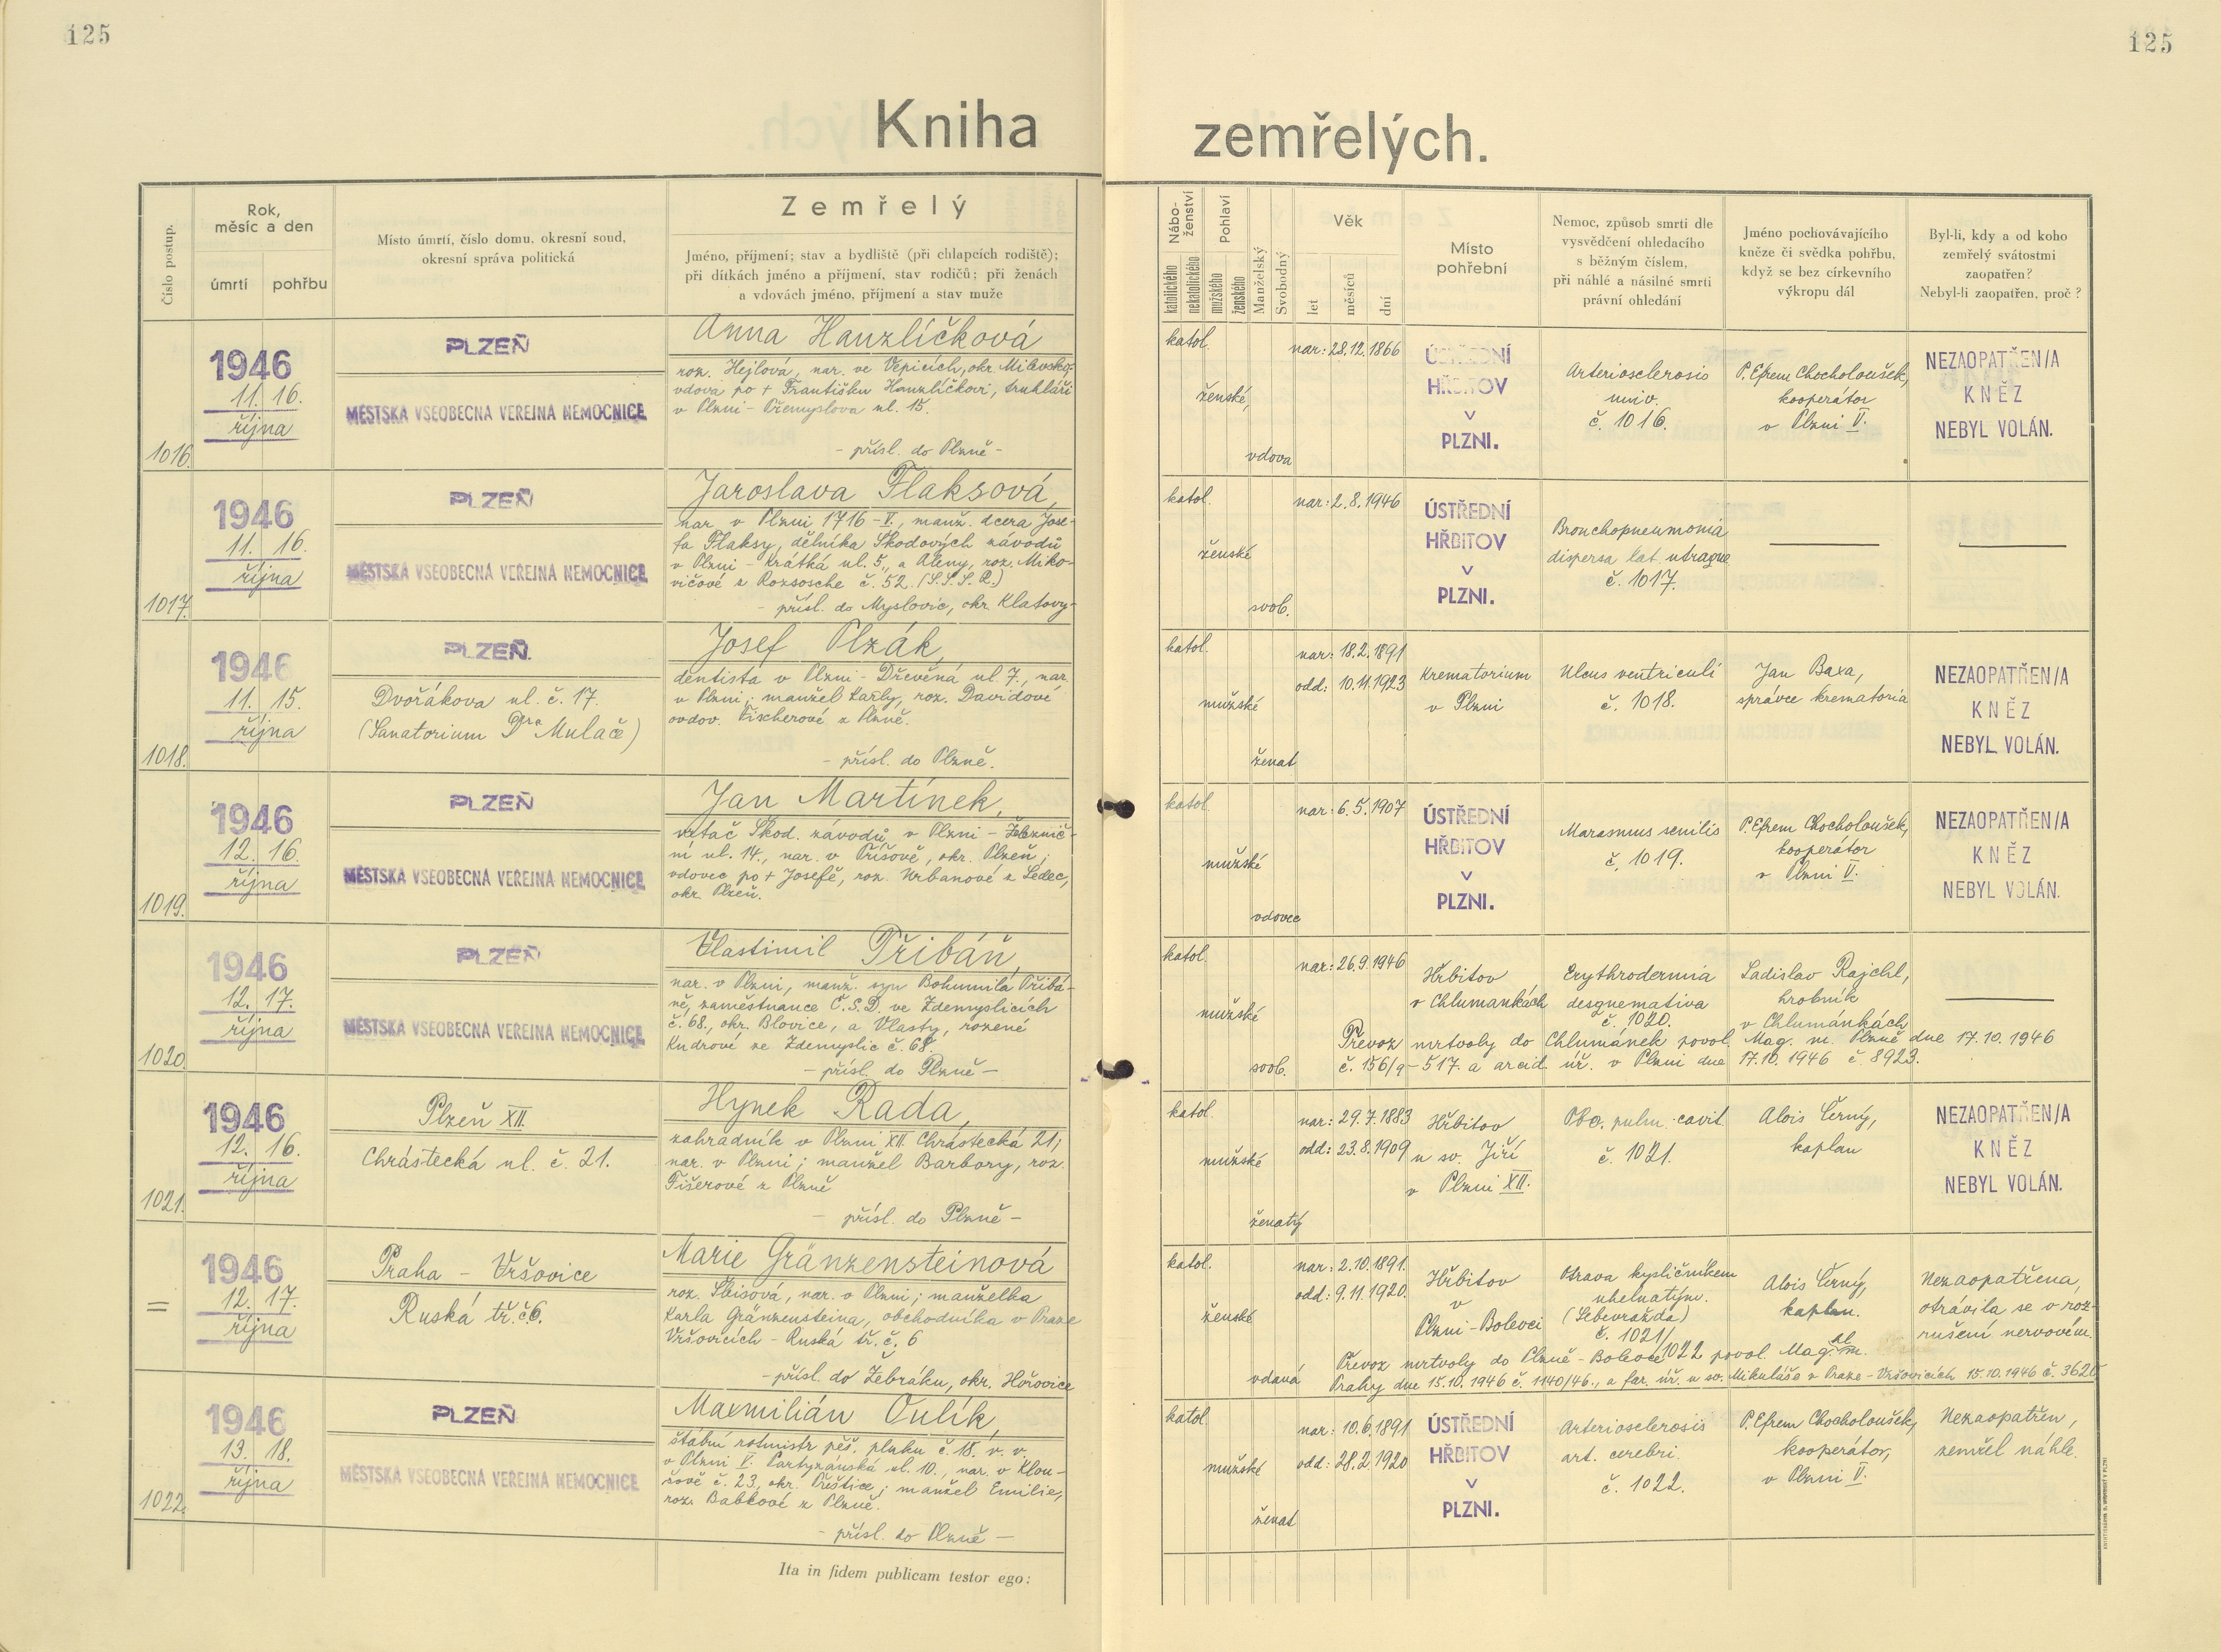 125
125
Kniha zemřelých.
Číslo postup.
Rok,
měsíc a den
úmrtí
pohřbu
Místo úmrtí, číslo domu, okresní soud,
okresní správa politická
Zemřelý
Jméno, příjmení; stav a bydliště (při chlapcích rodiště);
při dítkách jméno a příjmení, stav rodičů; při ženách
a vdovách jméno, příjmení a stav muže
Nábo-
ženství
katolického
nekatolického
Pohlaví
mužského
ženského
Manželský
Svobodný
Věk
let
měsíců
dní
Místo
pohřební
Nemoc, způsob smrti dle
vysvědčení ohledacího
s běžným číslem,
při náhlé a násilné smrti
právní ohledání
Jméno pochovávajícího
kněze či svědka pohřbu,
když se bez církevního
výkropu dál
Byl-li, kdy a od koho
zemřelý svátostmi
zaopatřen?
Nebyl-li zaopatřen, proč?
1016.
1946
11. 16.
října
PLZEŇ
MĚSTSKÁ VŠEOBECNÁ VEŘEJNÁ NEMOCNICE
Anna Hanzlíčková
roz. Hejlová, nar. ve Vepicích, okr. Milevsko
vdova po + Františku Hanzlíčkovi, truhláři
v Plzni - Přemyslova ul. 15.
- přísl. do Plzně -
katol.
ženské,
vdova
nar: 28.12.1866
ÚSTŘEDNÍ
HŘBITOV
V
PLZNI.
Arteriosclerosis
univ.
č. 1016.
P. Efrem Chocholoušek,
kooperátor
v Plzni V.
NEZAOPATŘEN/A
KNĚZ
NEBYL VOLÁN.
1017.
1946
11. 16.
října
PLZEŇ
MĚSTSKÁ VŠEOBECNÁ VEŘEJNÁ NEMOCNICE
Jaroslava Flaksová,
nar. v Plzni 1716 - V., manž. dcera Jose-
fa Flaksy, dělníka Škodových závodů
v Plzni - Krátká ul. 5., a Aleny, roz. Miko-
vičové z Rozsosche č. 52. (S.S.S.R.)
- přísl. do Myslovic, okr. Klatovy -
katol.
ženské
svob.
nar: 2.8.1946
ÚSTŘEDNÍ
HŘBITOV
V
PLZNI.
Bronchopneumonia
dispersa lat. utraque
č. 1017.
1018.
1946
11. 15.
října
PLZEŇ
Dvořákova ul. č. 17.
(Sanatorium Dra Mulače)
Josef Plzák,
dentista v Plzni - Dřevěná ul. 7., nar.
v Plzni; manžel Karly, roz. Davidové
ovdov. Fischerové z Plzně.
- přísl. do Plzně.
katol.
mužské
ženat
nar: 18.2.1891
odd: 10.11.1923
Krematorium
v Plzni
Ulcus ventriculi
č. 1018.
Jan Baxa,
správce krematoria
NEZAOPATŘEN/A
KNĚZ
NEBYL VOLÁN.
1019.
1946
12. 16.
října
PLZEŇ
MĚSTSKÁ VŠEOBECNÁ VEŘEJNÁ NEMOCNICE
Jan Martínek,
vrtač Škod. závodů v Plzni - Železnič-
ní ul. 14., nar. v Příšově, okr. Plzeň;
vdovec po + Josefě, roz. Urbanové z Ledec,
okr. Plzeň.
katol.
mužské
vdovec
nar: 6.5.1907
ÚSTŘEDNÍ
HŘBITOV
V
PLZNI.
Marasmus senilis
č. 1019.
P. Efrem Chocholoušek,
kooperátor
v Plzni V.
NEZAOPATŘEN/A
KNĚZ
NEBYL VOLÁN.
1020.
1946
12. 17.
října
PLZEŇ
MĚSTSKÁ VŠEOBECNÁ VEŘEJNÁ NEMOCNICE
Vlastimil Přibáň,
nar. v Plzni, manž. syn Bohumila Přibá-
ně, zaměstnance Č.S.D. ve Zdemyslicích
č. 68., okr. Blovice, a Vlasty, rozené
Kudrové ze Zdemyslic č. 68
- přísl. do Plzně -
katol.
mužské
svob.
nar: 26.9.1946
Hřbitov
v Chlumankách
Erythrodermia
desqnemativa
č. 1020.
Ladislav Rajchl,
hrobník
v Chlumánkách
Převoz mrtvoly do Chlumánek povol. Mag. m. Plzně dne 17.10.1946
č. 156/9-517. a arcid. úř. v Plzni dne 17.10.1946 č. 8923.
1021.
1946
12. 16.
října
Plzeň XII.
Chrástecká ul. č. 21.
Hynek Rada,
zahradník v Plzni XII. Chrástecká 21;
nar. v Plzni; manžel Barbory, roz.
Fišerové z Plzně
- přísl. do Plzně -
katol.
mužské
ženatý
nar: 29.7.1883
odd: 23.8.1909
Hřbitov
u sv. Jiří
v Plzni XII.
Tbc. pulm. cavit.
č. 1021.
Alois Černý,
kaplan
NEZAOPATŘEN/A
KNĚZ
NEBYL VOLÁN.
=
1946
12. 17.
října
Praha - Vršovice
Ruská tř. č. 6.
Marie Gränzensteinová
roz. Sbisová, nar. v Plzni; manželka
Karla Gränzensteina, obchodníka v Praze
Vršovicích - Ruská tř. č. 6
- přísl. do Žebráku, okr. Hořovice
katol.
ženské
vdaná
nar: 2.10.1891.
odd: 9.11.1920.
Hřbitov
v
Plzni - Bolevci
Otrava kysličníkem
uhelnatým.
(Sebevražda)
č. 1021/
1022
Alois Černý,
kaplan.
Nezaopatřena,
otrávila se v roz-
rušení nervovém.
Převoz mrtvoly do Plzně - Bolevce povol. Mag. hl. m.
Prahy dne 15.10.1946 č. 1140/46., a far. úř. u sv. Mikuláše v Praze - Vršovicích 15.10.1946 č. 3620
1022.
1946
13. 18.
října
PLZEŇ
MĚSTSKÁ VŠEOBECNÁ VEŘEJNÁ NEMOCNICE
Maxmilián Oulík,
štabní rotmistr pěš. pluku č. 18. v. v.
v Plzni V. Partyzánská ul. 10., nar. v Klou-
šově č. 23., okr. Přeštice; manžel Emilie,
roz. Babkové z Plzně.
- přísl. do Plzně -
katol.
mužské
ženat
nar: 10.6.1891
odd: 28.2.1920
ÚSTŘEDNÍ
HŘBITOV
V
PLZNI.
Arteriosclerosis
art. cerebri.
č. 1022.
P. Efrem Chocholoušek,
kooperátor,
v Plzni V.
Nezaopatřen,
zemřel náhle.
Ita in fidem publicam testor ego: